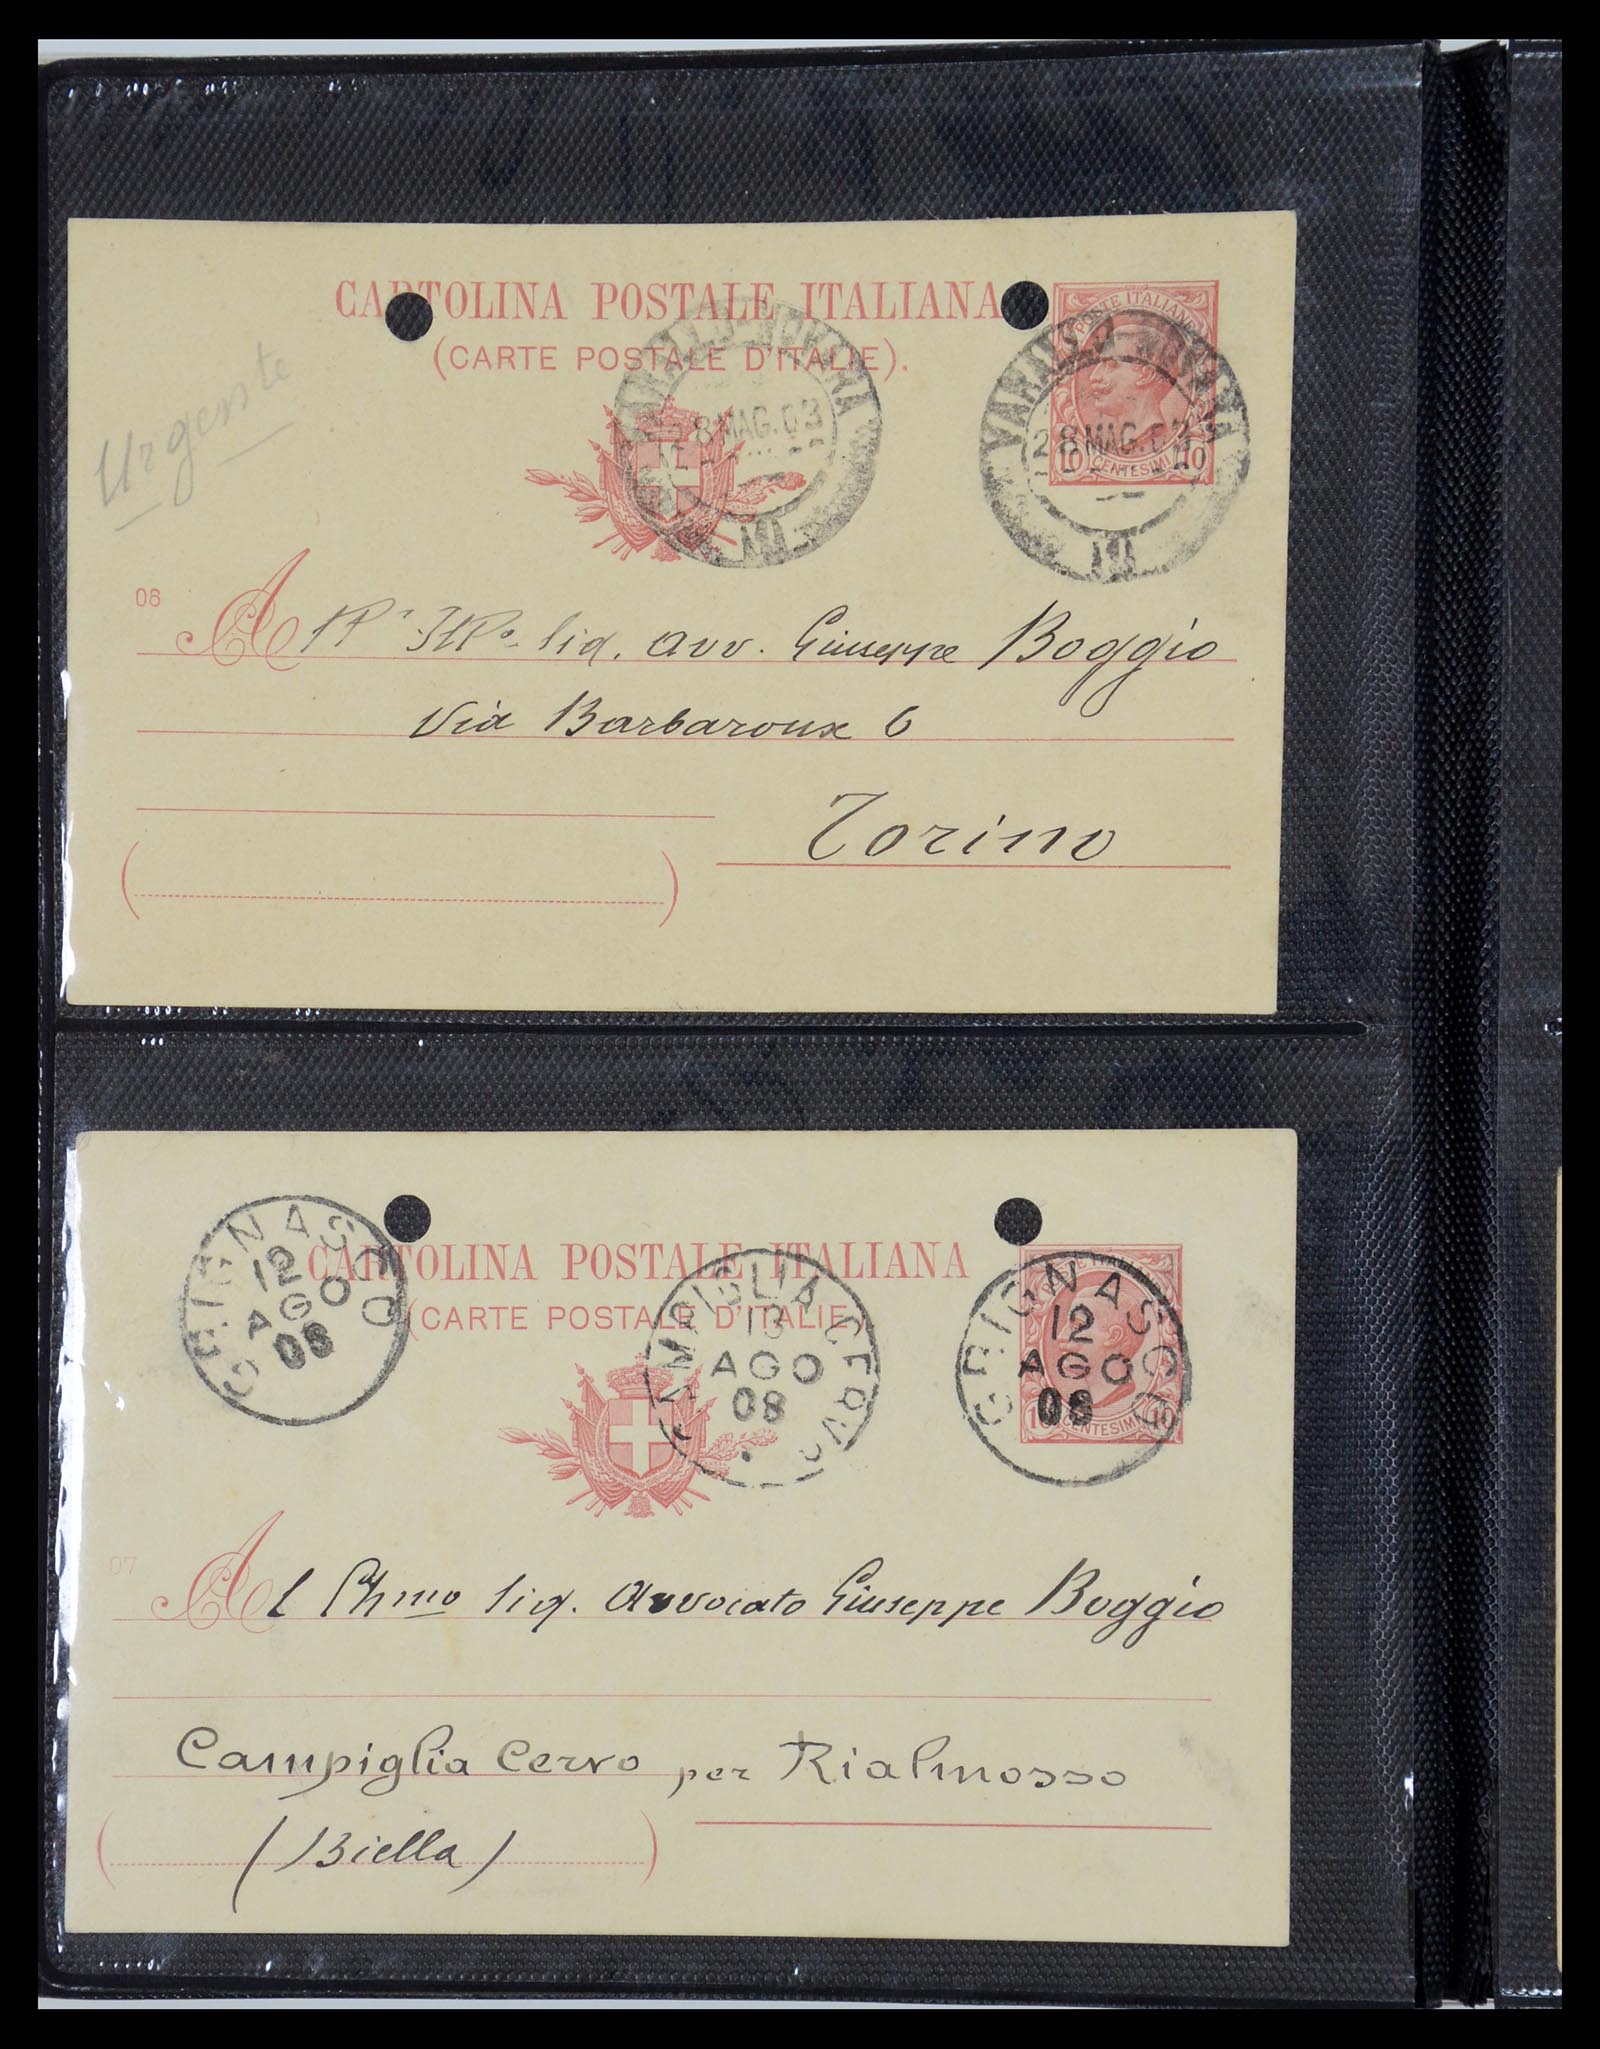 CARTOLINA POSTALE ITALIANA
(CARTE POSTALE D'ITALIE).
POSTE ITALIANE
10 CENTESIMI 10
VARALLO-NOVARA
28 MAG. 03
VARALLO-NOVARA
28 MAG. 03
Urgente
06
A sig. avv. Giuseppe Boggio
Via Barbaroux 6
Torino
CARTOLINA POSTALE ITALIANA
(CARTE POSTALE D'ITALIE)
10 CENTESIMI 10
GRIGNASCO
12
AGO
08
CAMPIGLIA CERVO
13
AGO
08
GRIGNASCO
12
AGO
08
07
Al sig. Avvocato Giuseppe Boggio
Campiglia Cervo per Rialmosso
(Biella)